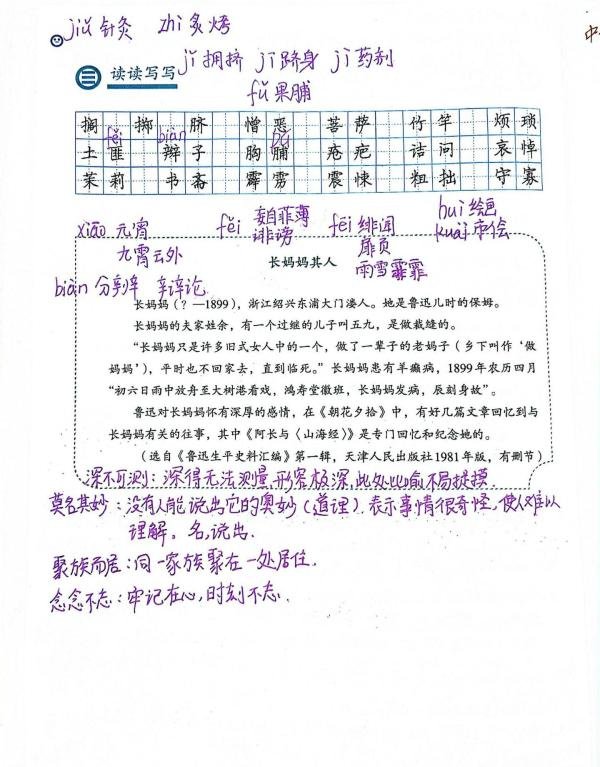 jiǔ 针灸 zhì 炙烤
中
jǐ 拥挤 jī 跻身 jì 药剂
三 读读写写
fǔ 果脯
搁 掷 脐 憎 恶 菩 萨 竹 竿 烦 琐
fěi biàn pú
土 匪 辫 子 胸 脯 疮 疤 诘 问 哀 悼
茉 莉 书 斋 霹 雳 震 悚 粗 拙 守 寡
xiāo 元宵 fěi 妄自菲薄 fēi 绯闻 huì 绘画
九霄云外 诽谤 扉页 kuài 市侩
长妈妈其人 雨雪霏霏
biàn 分辨 辩论
长妈妈（？—1899），浙江绍兴东浦大门溇人。她是鲁迅儿时的保姆。
长妈妈的夫家姓余，有一个过继的儿子叫五九，是做裁缝的。
“长妈妈只是许多旧式女人中的一个，做了一辈子的老妈子（乡下叫作‘做
妈妈’），平时也不回家去，直到临死。”长妈妈患有羊癫病，1899年农历四月
“初六日雨中放舟至大树港看戏，鸿寿堂徽班，长妈妈发病，辰刻身故”。
鲁迅对长妈妈怀有深厚的感情，在《朝花夕拾》中，有好几篇文章回忆到与
长妈妈有关的往事，其中《阿长与〈山海经〉》是专门回忆和纪念她的。
（选自《鲁迅生平史料汇编》第一辑，天津人民出版社1981年版，有删节）
深不可测：深得无法测量，形容极深，此处比喻不易捉摸．
莫名其妙：没有人能说出它的奥妙（道理）．表示事情很奇怪，使人难以
理解。名，说出．
聚族而居：同一家族聚在一处居住．
念念不忘：牢记在心，时刻不忘．